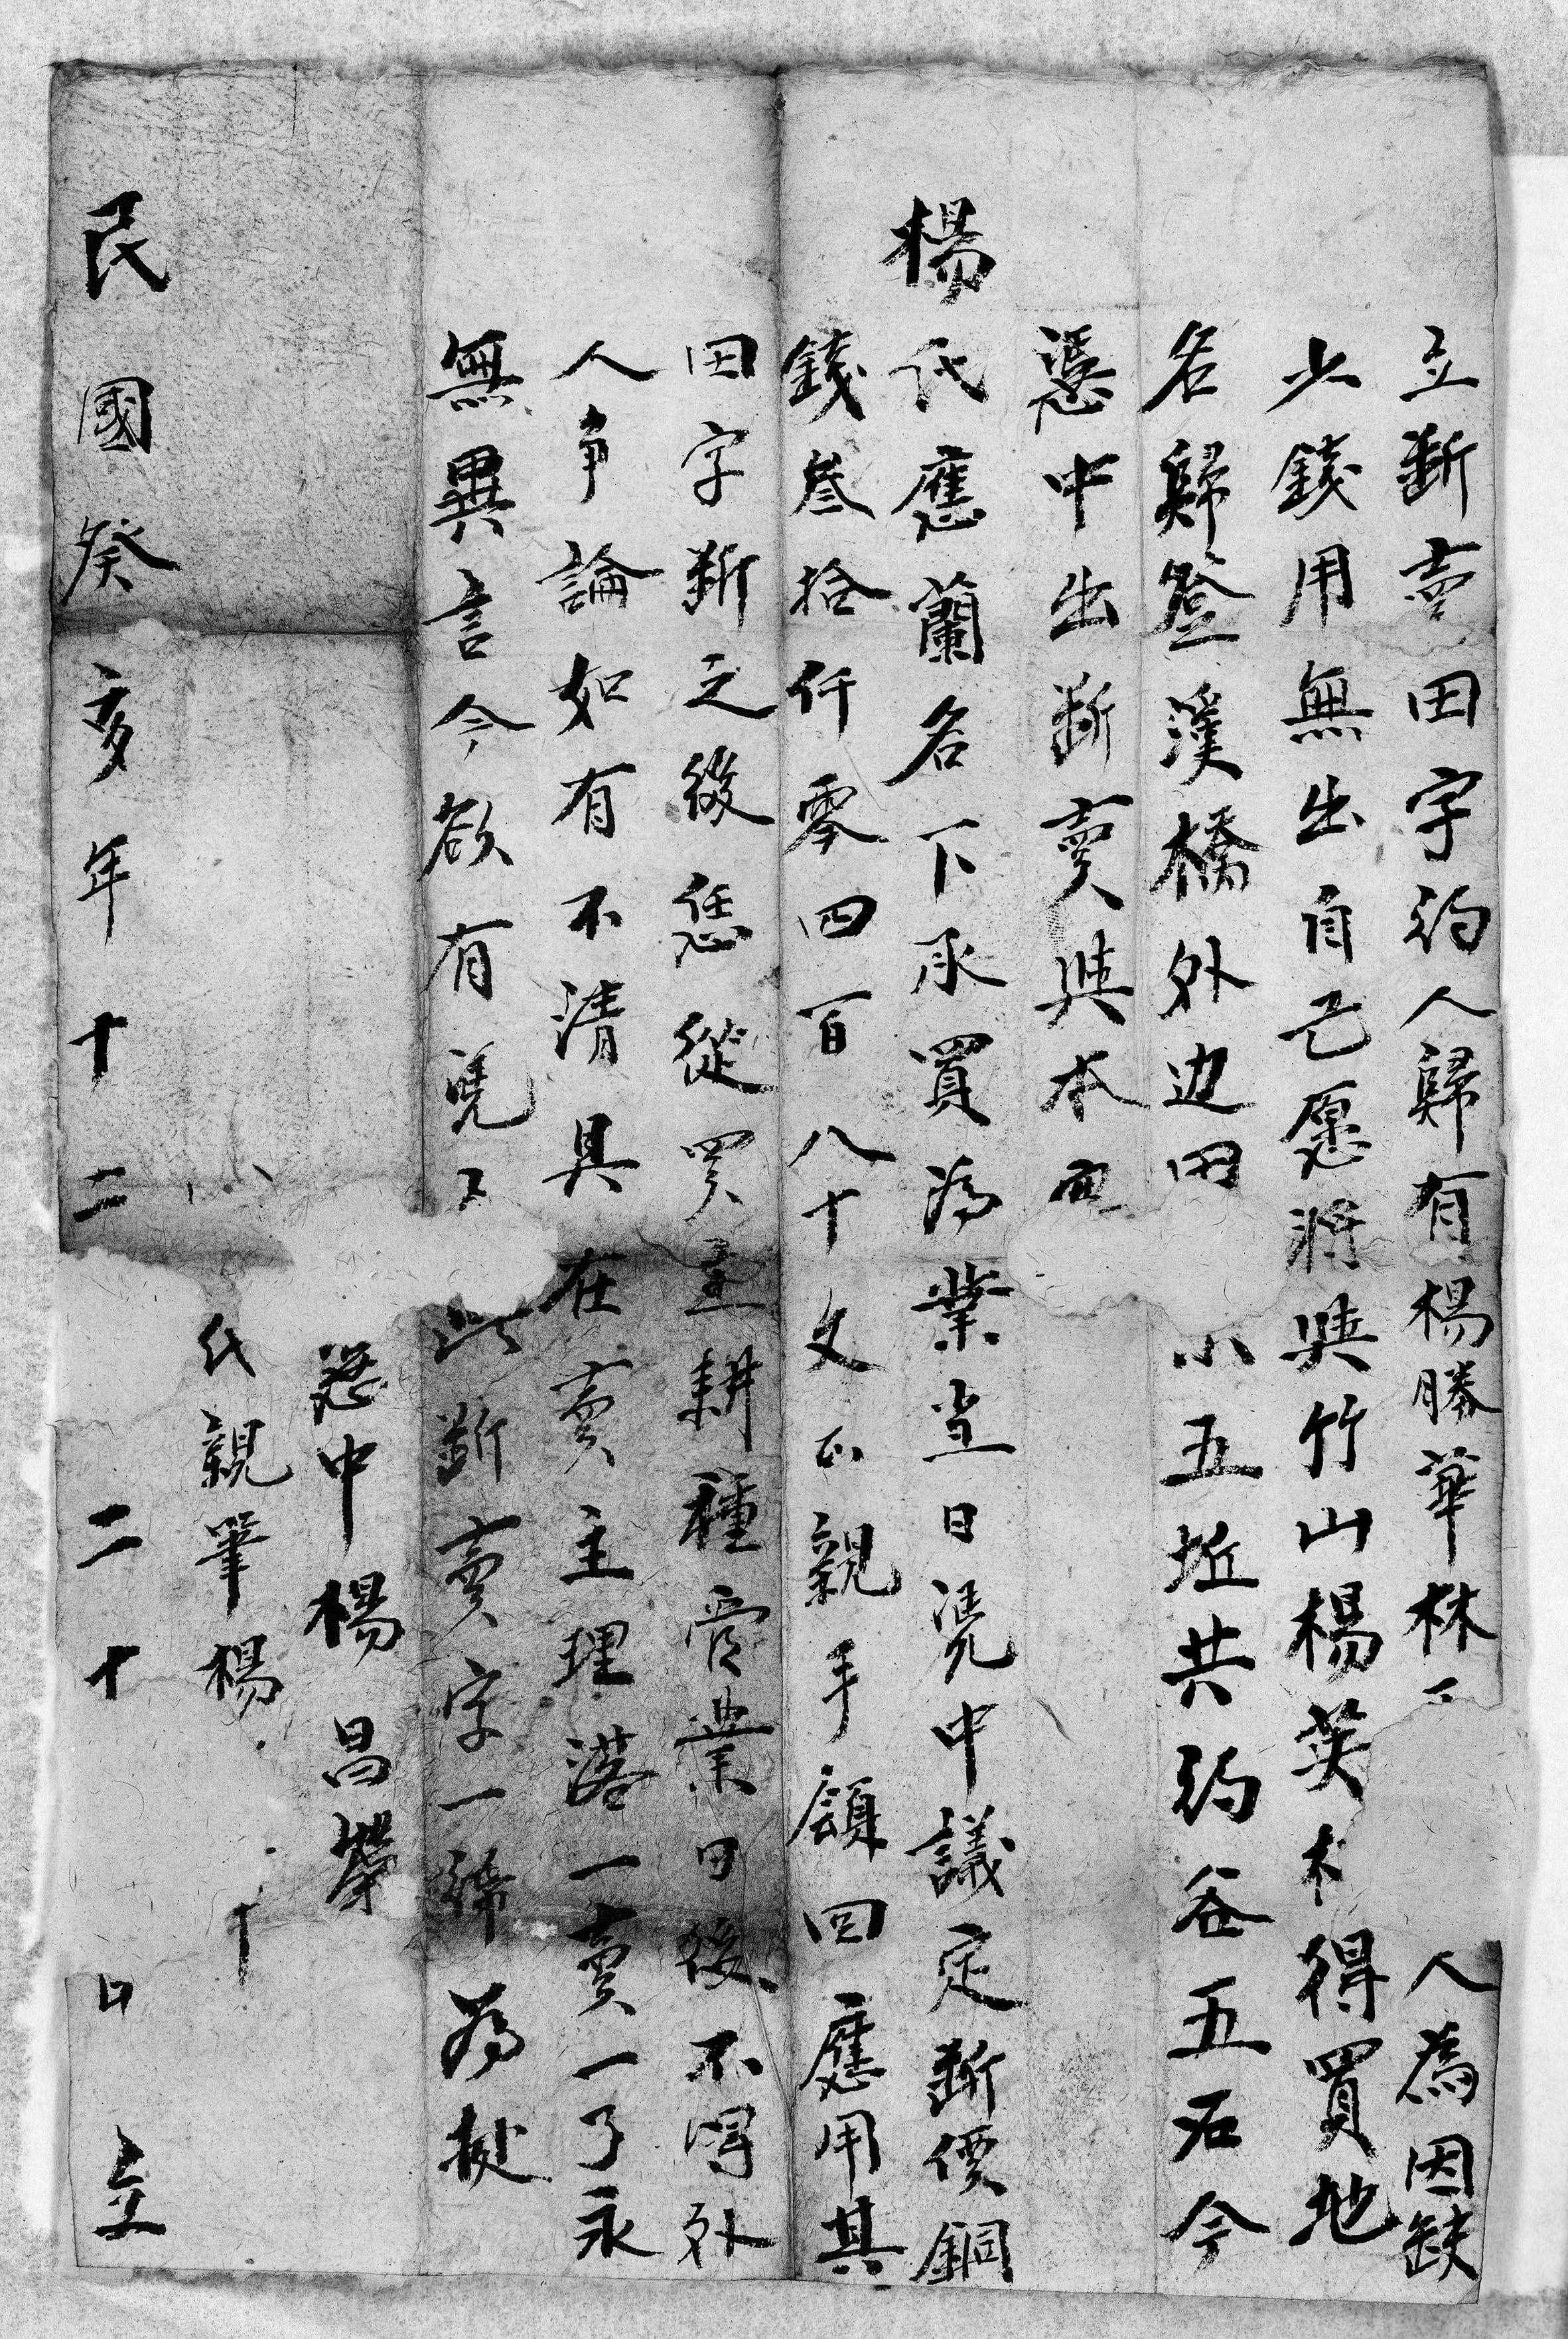 立斷賣田字約人歸有楊勝華林人為因缺
少錢用無出自己愿將與竹山楊英得買地
名歸登溪橋外边田小五坵共約谷五石今
憑中出斷賣與本
楊氏應蘭名下承買為業當日凴中議定斷價銅
錢叁拾仟零四百八十文正親手領回應用其
田字斷之後恁從買主耕種管業日後不得外
人爭論如有不清具在賣主理落一賣一了永
無異言今欲有凴此斷賣字一紙為㨿
憑中楊昌榮
代親筆楊
民國癸亥年十二二十日立